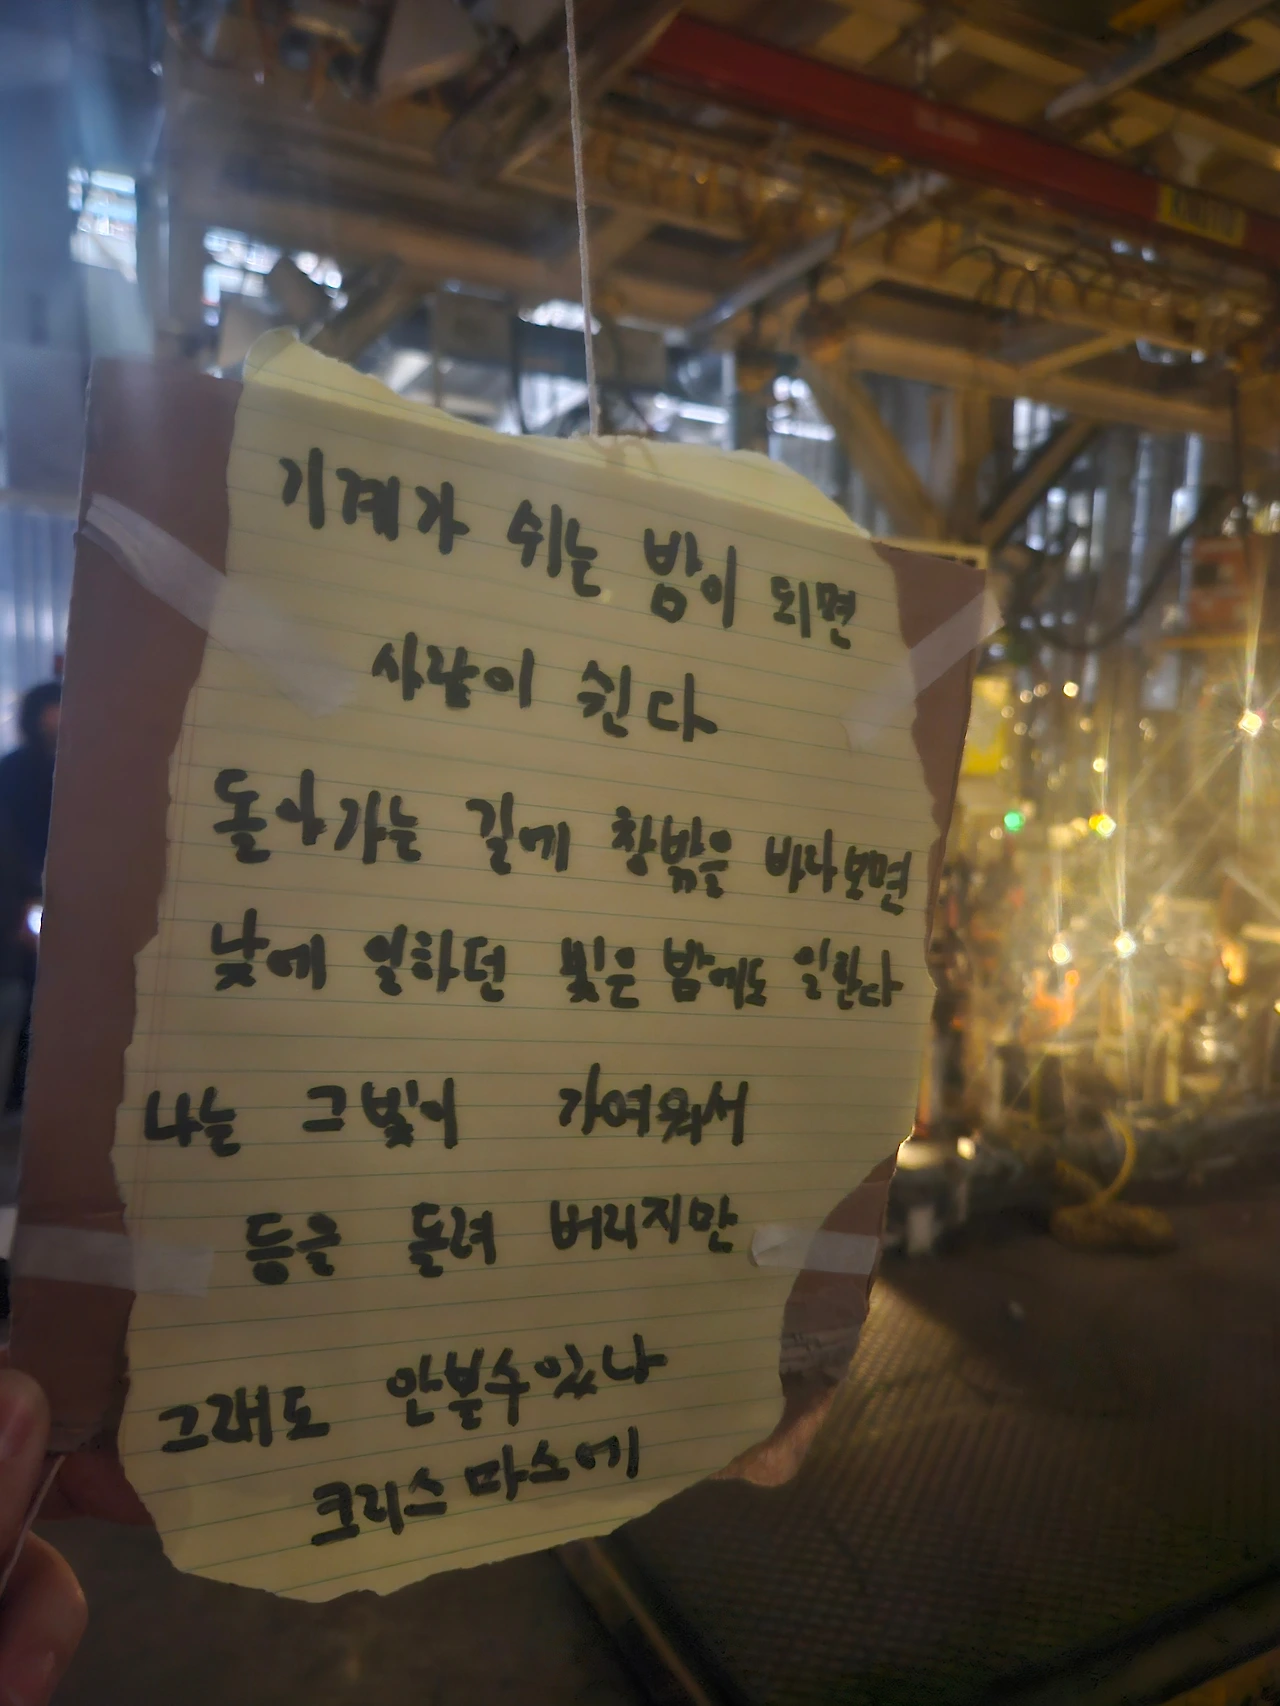 기계가 쉬는 밤이 되면
사람이 쉰다
돌아가는 길에 창밖을 바라보면
낮에 일하던 빛은 밤에도 일한다
나는 그 빛이 가여워서
등을 돌려 버리지만
그래도 안볼수있나
크리스마스에